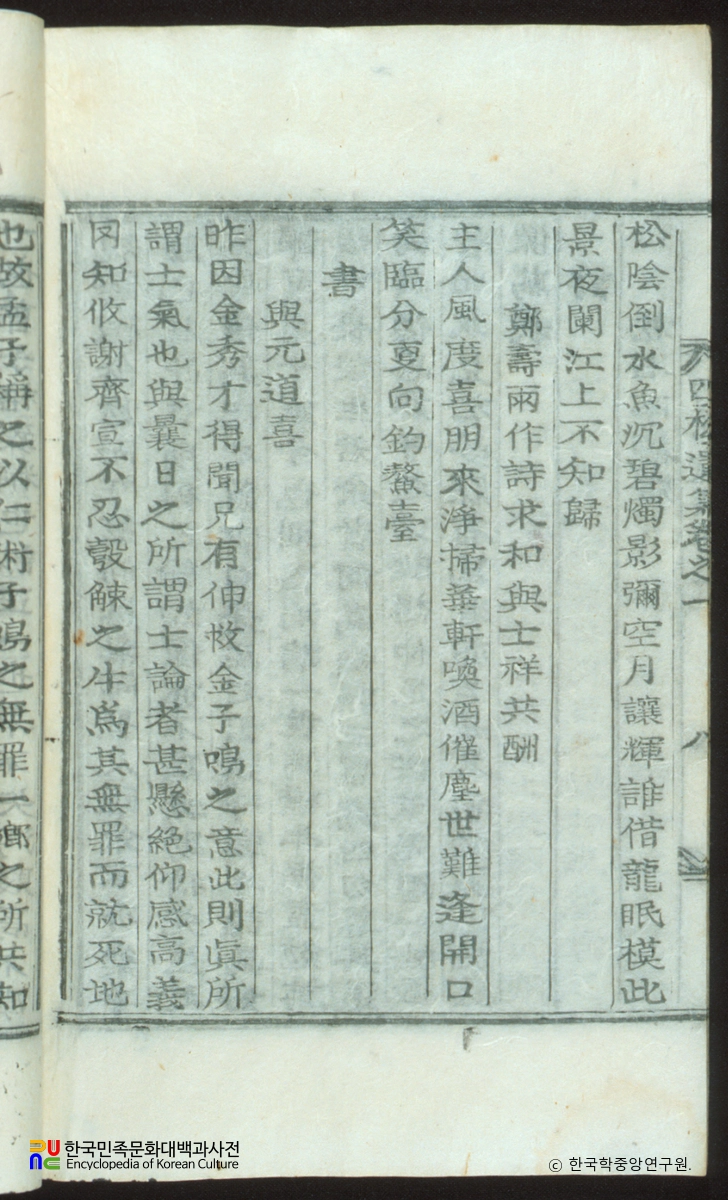 四松遺集卷之一
八
松陰倒水魚沉碧燭影彌空月讓輝誰借龍眠模此
景夜闌江上不知歸
鄭壽兩作詩求和與士祥共酬
主人風度喜朋來淨掃華軒喚酒催塵世難逢開口
笑臨分更向釣鰲臺
書
與元道喜
昨因金秀才得聞兄有伸救金子鳴之意此則眞所
謂士氣也與曩日之所謂士論者甚懸絶仰感高義
罔知攸謝齊宣不忍觳觫之牛爲其無罪而就死地
也故孟子稱之以仁術子鳴之無罪一鄕之所共知
한국민족문화대백과사전
Encyclopedia of Korean Culture
ⓒ 한국학중앙연구원.